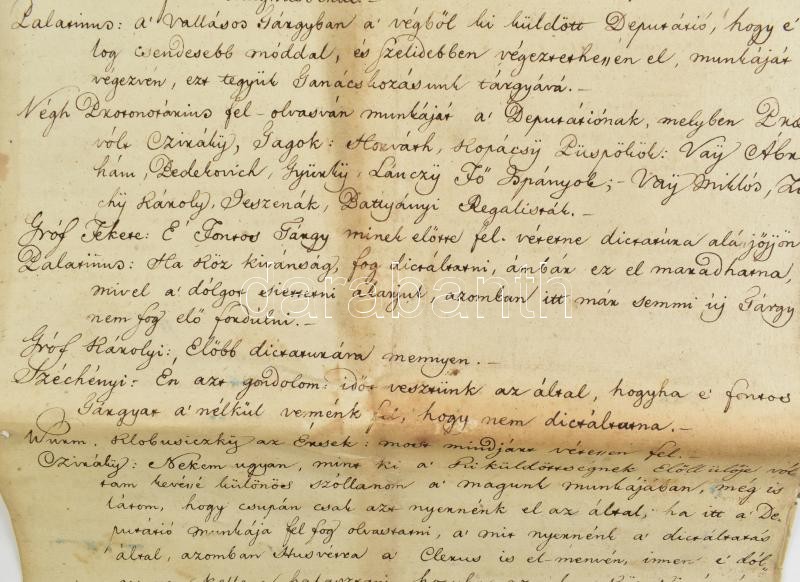 Palatinus: a' vallásos Tárgyban a' végből ki küldött Deputátió, hogy e'
log csendesebb móddal, és szelidebben végeztethessen el, munkáját
végezvén, ezt tegyük Tanácskozásunk tárgyává. –
Végh Protonotárius fel-olvasván munkáját a' Deputátiónak, melyben Præ
volt Cziráky, Tagok: Horváth, Kopácsÿ Püspökök: Vaÿ Ábr
hám, Bedekovich, Gyürkÿ, Lánczÿ Fő Ispányok; – Vaÿ Miklós, Zi
chÿ Károly, Deszenák, Battyányi Regalisták. –
Gróf Fekete: E' Fontos Tárgy minek előtte fel vétetne dictatúra alá jöjjön
Palatinus: Ha Köz kivánság, fog dictáltatni, ámbár ez el maradhatna,
mivel a' dolgot siettetni akarjuk, azomban itt már semmi új Tárgy
nem fog elő fordulni. –
Gróf Károlyi: Előbb dictaturára mennyen. –
Széchényi: Én azt gondolom: időt vesztünk az által, hogyha e' fontos
Tárgyat a' nélkül vennénk fel, hogy nem dictáltatna. –
Wurm. Klobusiczkÿ az Érsek: most mindjárt vétessen fel. –
Cziráky: Nekem ugyan, mint ki a' Ki küldöttségnek Előll ülője vol
tam kevéssé különös szóllanom a' magunk munkájában, még is
látom, hogy csupán csak azt nyernénk el az által, ha itt a' De,
putátió munkája fel fog olvastatni, a' mit nyernénk a' dictáltatás
által, azomban Husvétra a' Clerus is el-menvén, innen e' dol,
darabanth